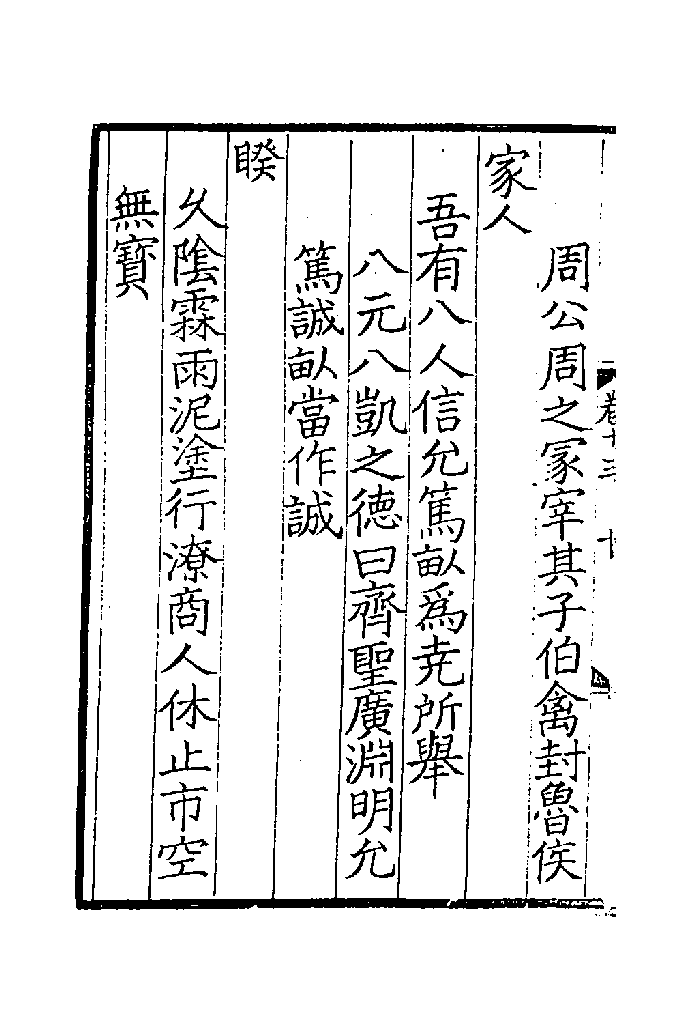 卷十三
周公周之冢宰其子伯禽封魯侯
家人
吾有八人信允篤畝爲尭所舉
八元八凱之德曰齊聖廣淵明允
篤誠畝當作誠
睽
乆隂霖雨泥塗行潦商人休止市空
無寳